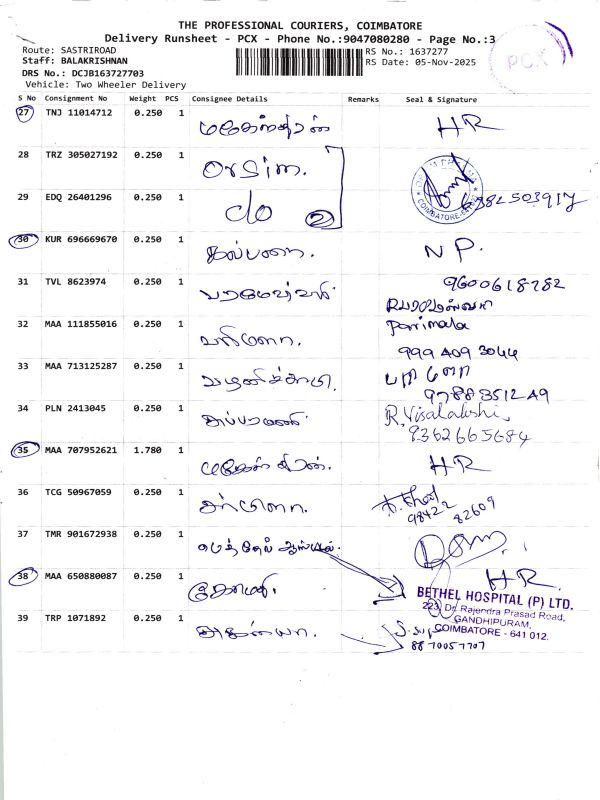 THE PROFESSIONAL COURIERS, COIMBATORE
Delivery Runsheet - PCX - Phone No.:9047080280 - Page No.:3
Route: SASTRIROAD
Staff: BALAKRISHNAN
DRS No.: DCJB163727703
Vehicle: Two Wheeler Delivery
RS No.: 1637277
RS Date: 05-Nov-2025
PCX
S No Consignment No Weight PCS Consignee Details Remarks Seal & Signature
27 TNJ 11014712 0.250 1 HR
28 TRZ 305027192 0.250 1
29 EDQ 26401296 0.250 1 c/o 2 6382503917
30 KUR 696669670 0.250 1 கல்பனா. NP.
31 TVL 8623974 0.250 1 பரமேஸ்வரி 9600618782
32 MAA 111855016 0.250 1 பரிமளா. Parimala
999 409 3044
33 MAA 713125287 0.250 1 பழனிச்சாமி
97883512 49
34 PLN 2413045 0.250 1 R. Visalakshi,
9362665684
35 MAA 707952621 1.780 1 HR
36 TCG 50967059 0.250 1
98422 82609
37 TMR 901672938 0.250 1
38 MAA 650880087 0.250 1 கோமதி. HR.
BETHEL HOSPITAL (P) LTD.
223, Dr. Rajendra Prasad Road,
GANDHIPURAM,
COIMBATORE - 641 012.
39 TRP 1071892 0.250 1
8870057707